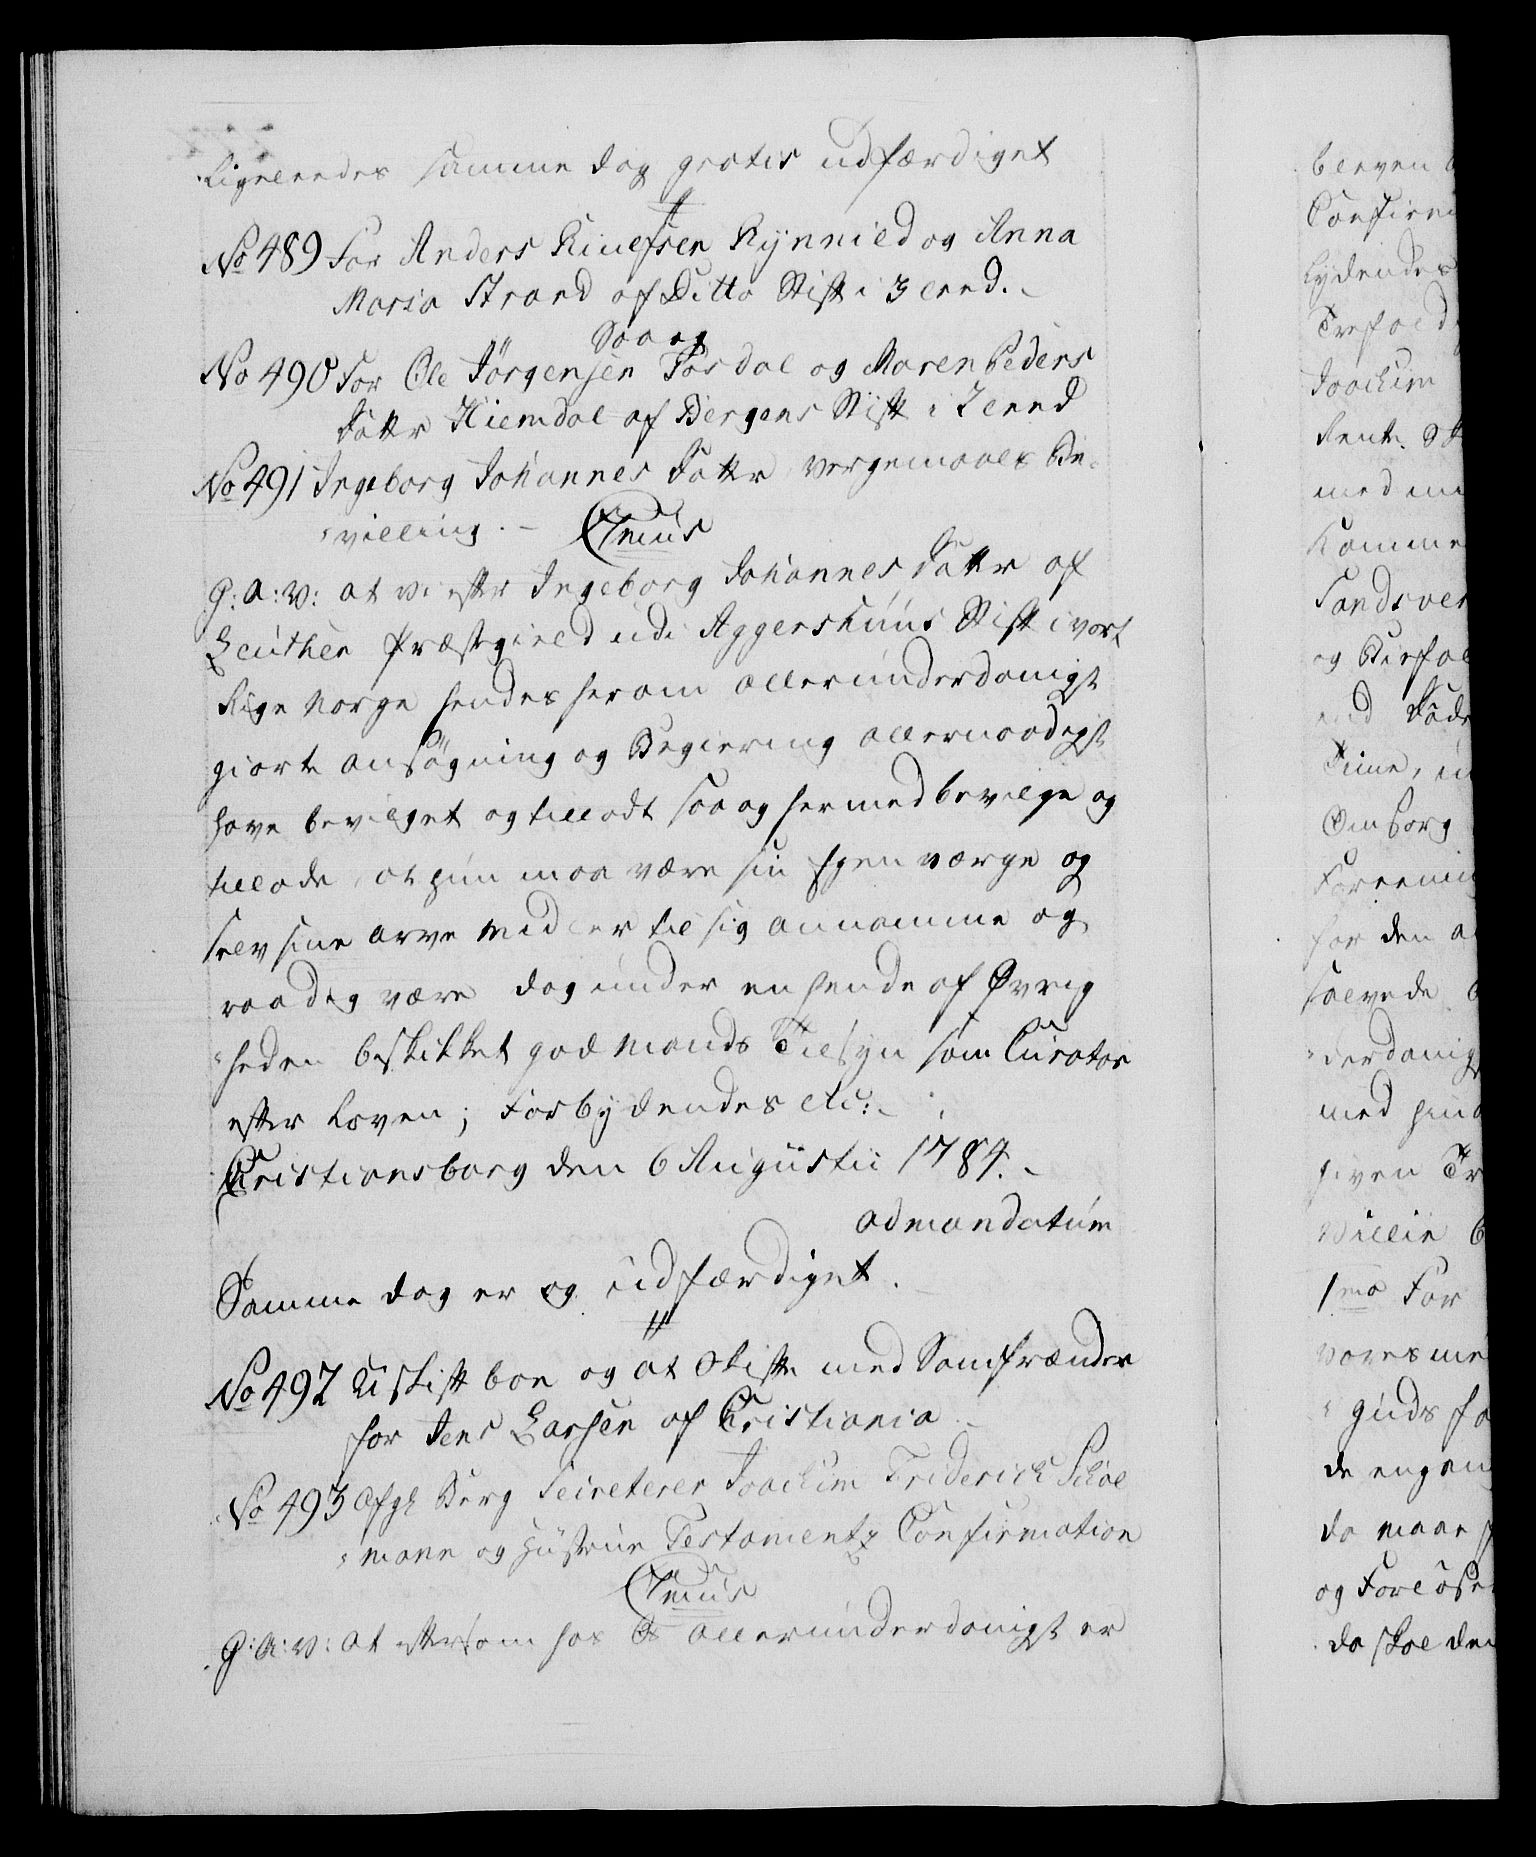 Ligeleedes samme dag gratis udfærdiget
No 489 For Anders Knudsen Rynnild og Anna
Maria Strand af Ditto Stift i 3 leed.
Saa og
No 490 For Ole Jørgensen Fosdal og Maren Peders
Datter Hiemdal af Bergens Stift i 2 leed
No 491 Ingeborg Johannes Datter vergemaals Be-
villing. C Tmus
G: A: V: at vi efter Ingeborg Johannes Datter af
Leuthen Præstegield udi Aggershuus Stift i vort
Rige Norge hendes herom allerunderdanigst
giorte ansøgning og Begiering allernaadigst
have bevilget og tilladt saa og hermed bevilge og
tillade, at hun maa være sin Egen værge og
selv sine arve Midler til sig annamme og
raadig være dog under en hende af Øvrig
heden beskikket god Mands Tilsyn som Curator
efter Loven; Forbydendes etc:
Christiansborg den 6 Augustii 1784.
ad mandatum
Samme dag er og udfærdiget.
No 492 Uskift boe og at skifte med Samfrænder
for Jens Larsen af Christiania
No 493 Afgl Berg Secreterer Joachim Friderich
mann og Hustrue Testaments Confirmation
C Tmus
G: A: V: at eftersom hos Os allerunderdanigst er
bleven
Lydendes
Joachim
med
Komme
og
Foreenin
for den
derdanig
med
given
1mo For
Guds
de
da maae
og Forløse
da skal den